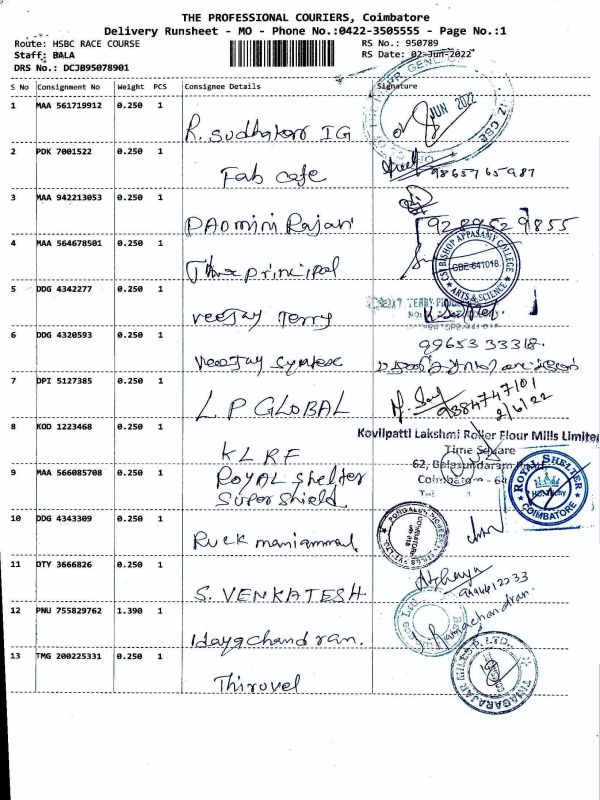 THE PROFESSIONAL COURIERS, Coimbatore
Delivery Runsheet - MO - Phone No.:0422-3505555 - Page No.:1
Route: HSBC RACE COURSE RS No.: 950789
Staff: BALA RS Date: 02-Jun-2022
DRS No.: DCJB95078901
S No Consignment No Weight PCS Consignee Details Signature
1 MAA 561719912 0.250 1
R. Sudhakar IG
JUN 2022
2 PDK 7001522 0.250 1
Fab cafe 9865765987
3 MAA 942213053 0.250 1
PADMINI Rajan
4 MAA 564678501 0.250 1
The principal
CSI BISHOP APPASAMY COLLEGE
CBE-641018.
ARTS & SCIENCE
5 DDG 4342277 0.250 1
Veejay Terry
6 DDG 4320593 0.250 1
Veejay Syntex 99653 33318.
7 DPI 5127385 0.250 1
L P GLOBAL 9384747101
2/6/22
8 KOD 1223468 0.250 1
KLRF
Kovilpatti Lakshmi Roller Flour Mills Limited
Time Square
62, Balasundaram
9 MAA 566085708 0.250 1
ROYAL Shelter
Super Shield
ROYAL SHELTER
COIMBATORE
10 DDG 4343309 0.250 1
Ruckmaniammal
11 OTY 3666826 0.250 1
S. VENKATESH
12 PNU 755829762 1.390 1
Idayachandran. Ramachandran.
13 TMG 200225331 0.250 1
Thiruvel
THIAGARAJAR MILLS P. LTD.